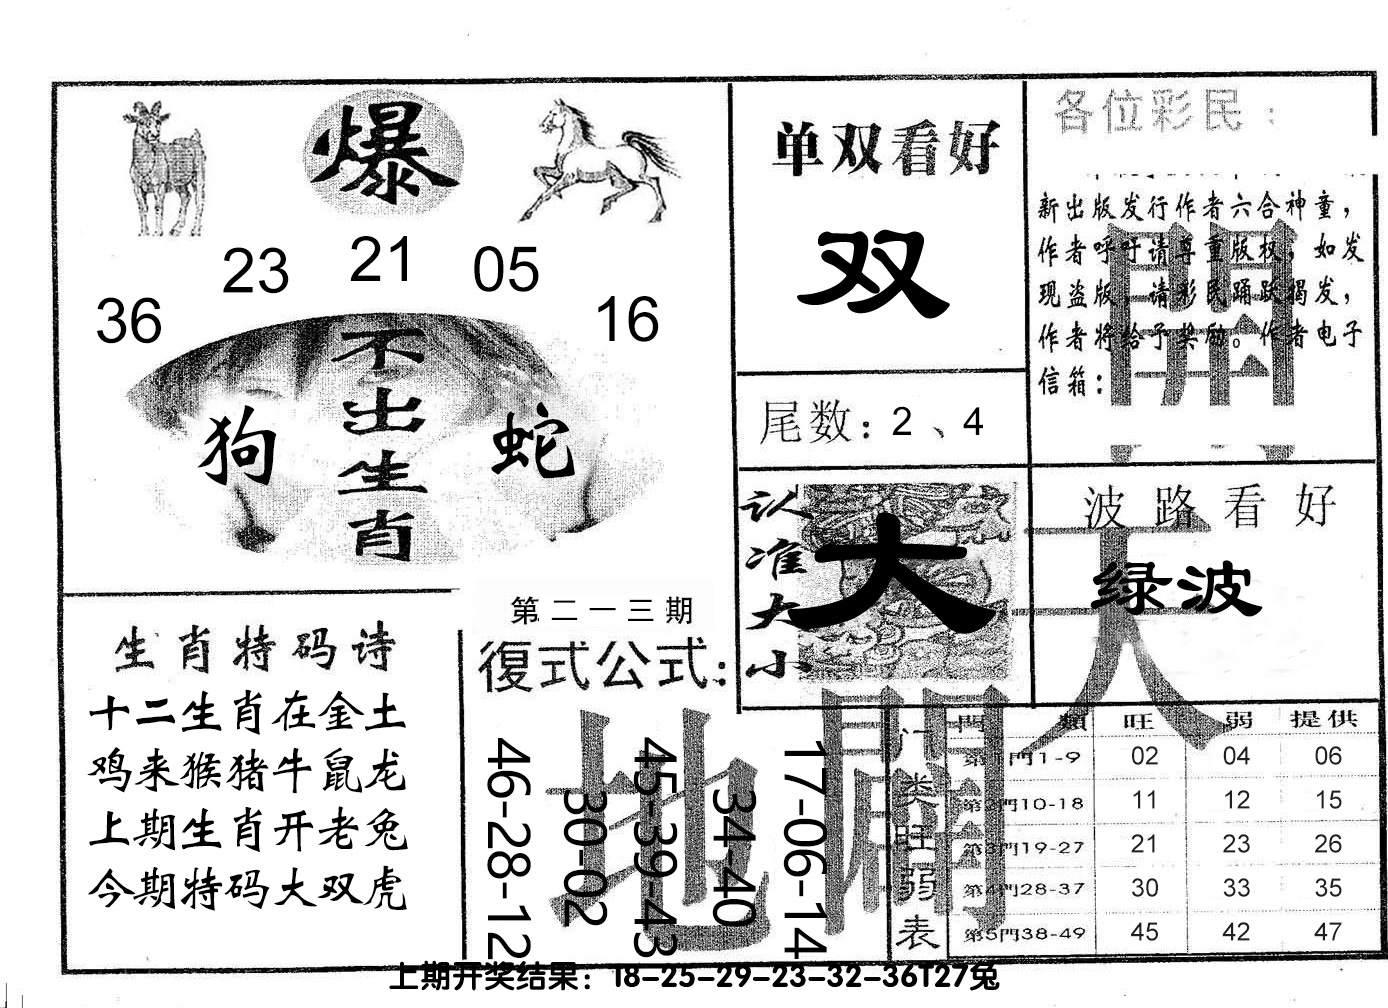 爆
23 21 05
36 16
不出生肖
狗 蛇
单双看好
双
各位彩民：
新出版发行作者六合神童，
作者呼吁请尊重版权，如发
现盗版，请彩民踊跃揭发，
作者将给予奖励。作者电子
信箱：
尾数：2、4
认准大小
大
波路看好
绿波
天
生肖特码诗
十二生肖在金土
鸡来猴猪牛鼠龙
上期生肖开老兔
今期特码大双虎
第二一三期
復式公式：
地
46-28-12
30-02
45-39-43
34-40
17-06-14
门类旺弱表
門類 旺 弱 提供
第1門1-9 02 04 06
第2門10-18 11 12 15
第3門19-27 21 23 26
第4門28-37 30 33 35
第5門38-49 45 42 47
上期开奖结果：18-25-29-23-32-36T27兔